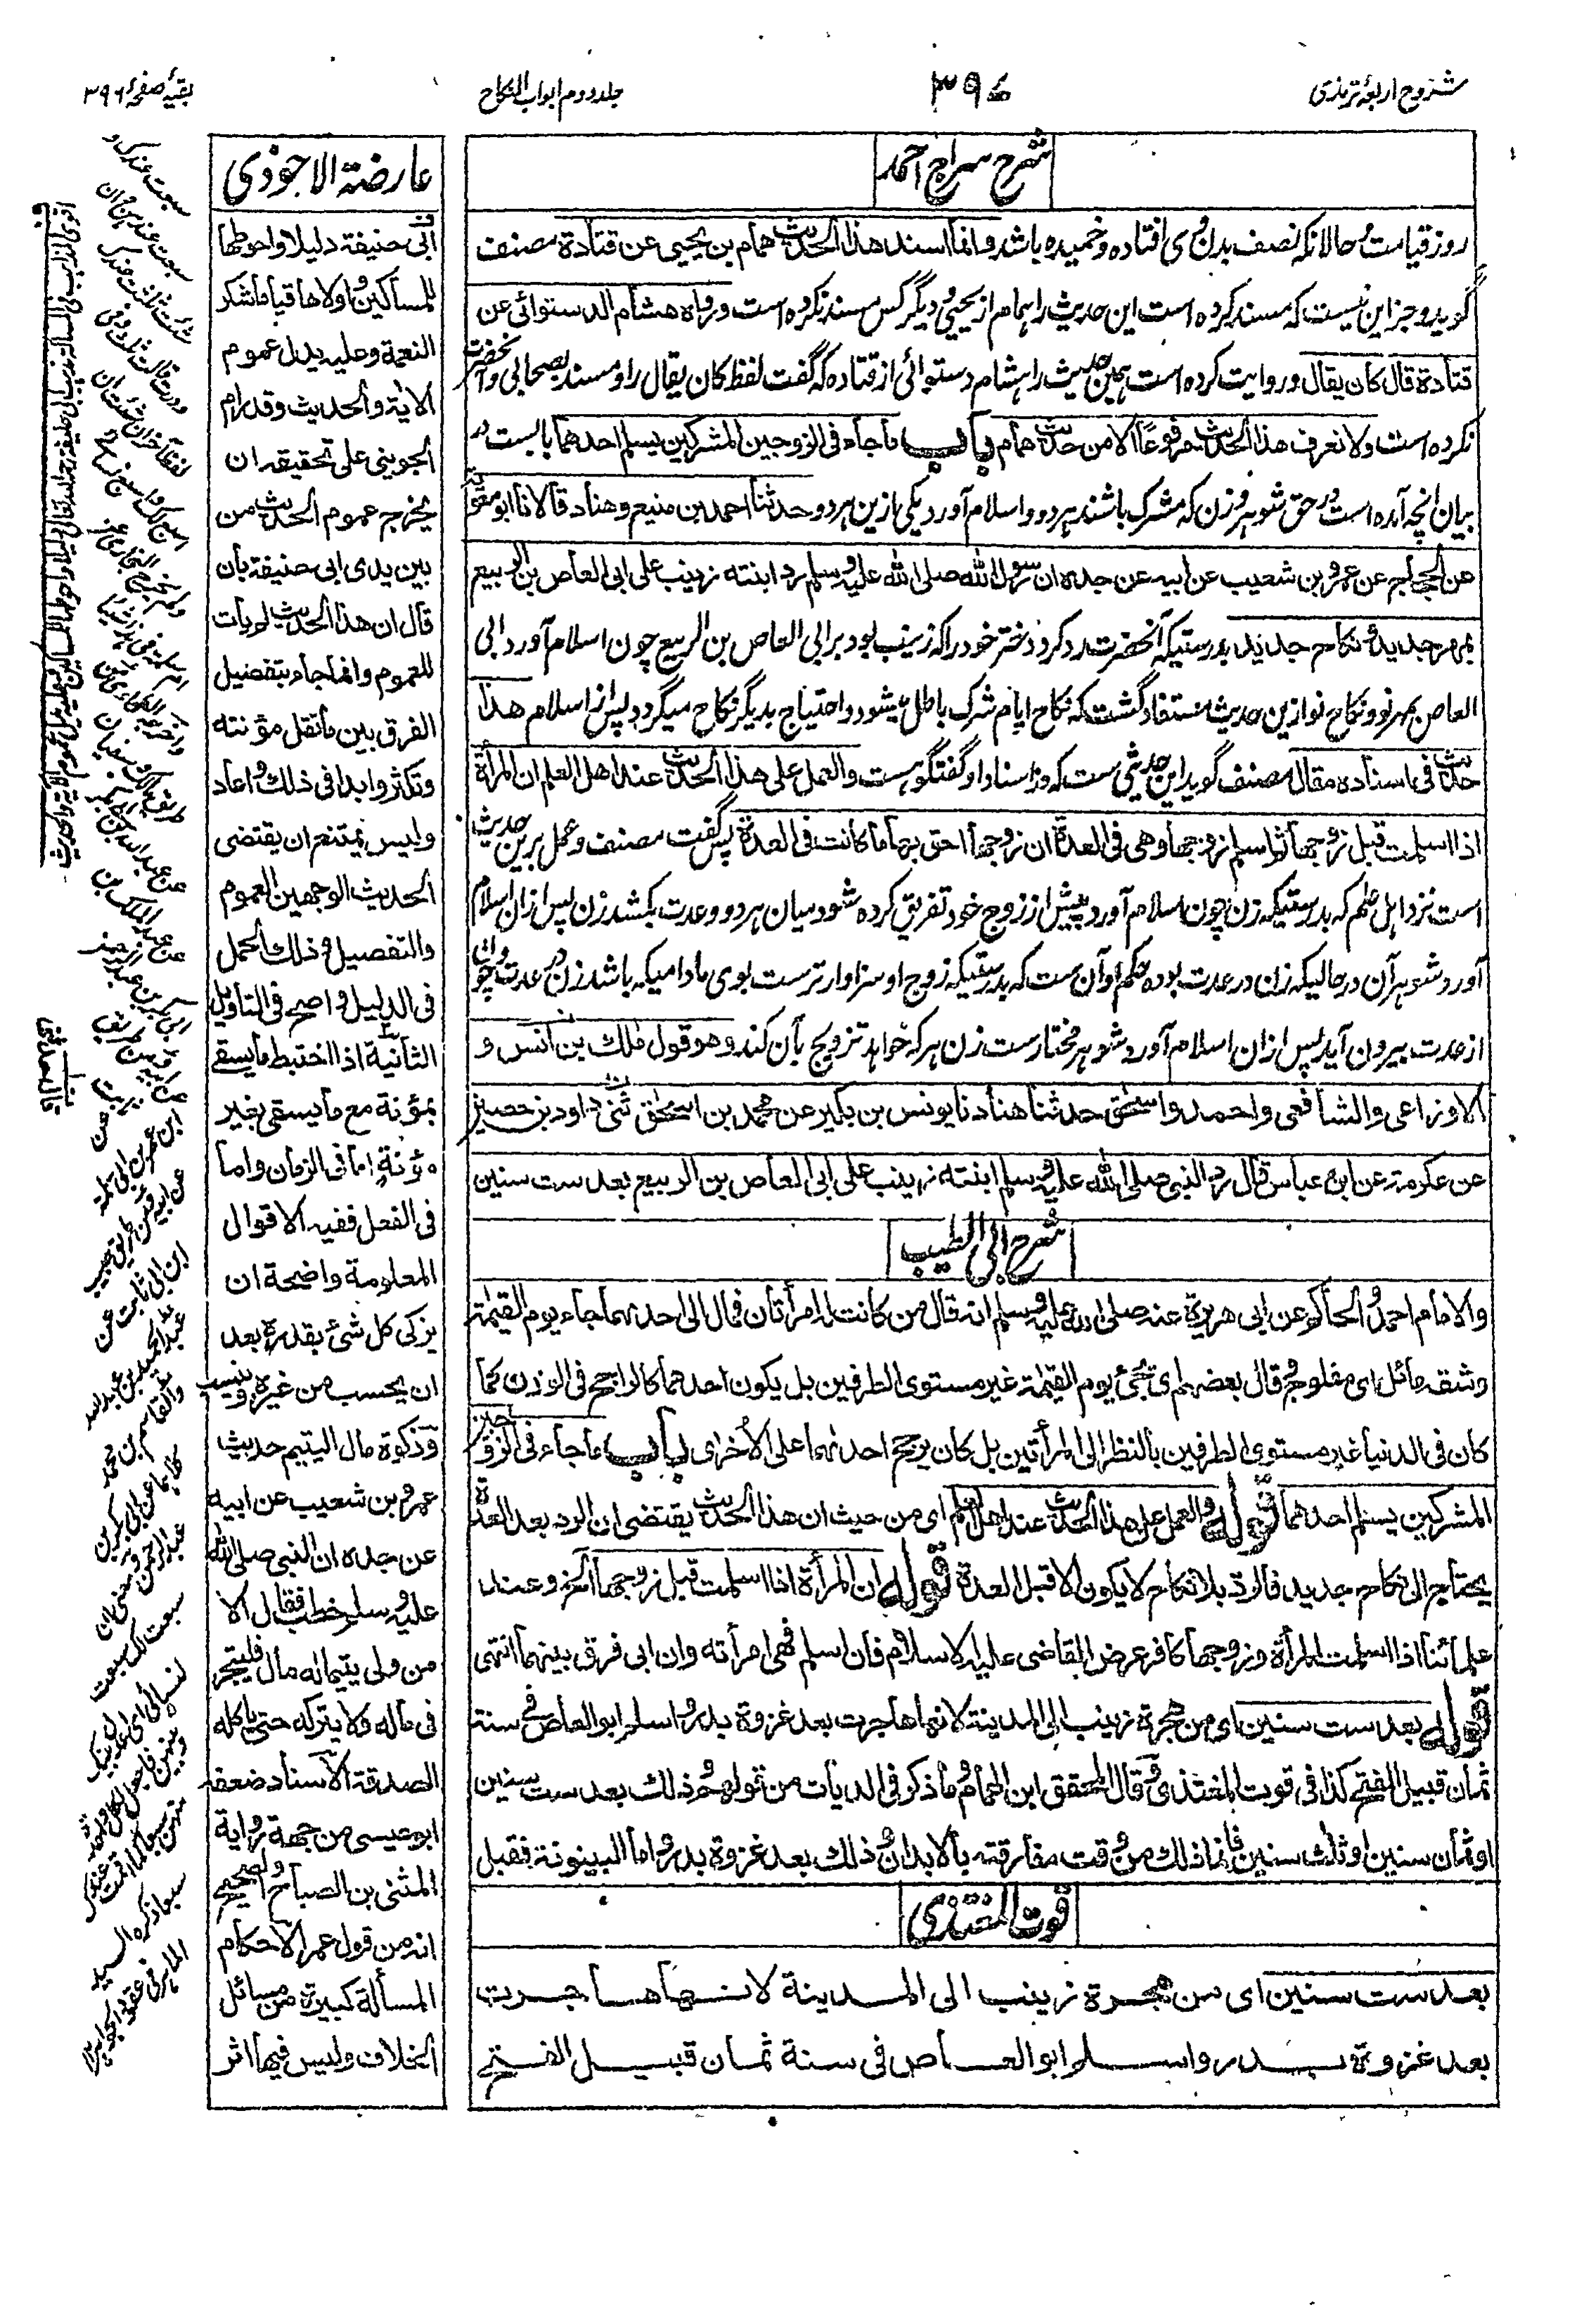 شروح اربعهٔ ترمذی
۳۹۷
جلد دوم ابواب النکاح
بقیهٔ صفحهٔ ۳۹۶
شرح سراج احمد
روز قیامت و حالانکه نصف بدن وی افتاده و خمیده باشد و انما اسند هذا الحدیث همام بن یحیی عن قتادة مصنف
گوید و جز این نیست که مسند کرده است این حدیث را همام از یحیی و دیگر کس مسند نکرده است و رواه هشام الدستوائی عن
قتادة قال کان یقال و روایت کرده است همین حدیث را هشام دستوائی از قتاده که گفت لفظ کان یقال را و مسند بصحابی و آنحضرت
نکرده است ولا نعرف هذا الحدیث مرفوعاً الا من حدیث همام باب ماجاء فی الزوجین المشرکین یسلم احدهما بابیست در
بیان آنچه آمده است در حق شوهر و زن که مشرک باشند هر دو و اسلام آورد یکی ازین هر دو حدثنا احمد بن منیع وهناد قالا نا ابو معویة
عن الحجاج عن عمرو بن شعیب عن ابیه عن جده ان رسول الله صلی الله علیه وسلم رد ابنته زینب علی ابی العاص بن الربیع
بمهر جدید و نکاح جدید بدرستیکه آنحضرت رد کرد دختر خود را که زینب بود بر ابی العاص بن الربیع چون اسلام آورد ابی
العاص بمهر نو و نکاح نو ازین حدیث مستفاد گشت که نکاح ایام شرک باطل میشود و احتیاج بدیگر نکاح میگردد پس از اسلام هذا
حدیث فی اسناده مقال مصنف گوید این حدیثی ست که در اسناد او گفتگو هست والعمل علی هذا الحدیث عند اهل العلم ان المرأة
اذا اسلمت قبل زوجها ثم اسلم زوجها وهی فی العدة ان زوجها احق بها ما کانت فی العدة پس گفت مصنف و عمل برین حدیث
است نزد اهل علم که بدرستیکه زن چون اسلام آورد پیش از زوج خود تفریق کرده شود میان هر دو و عدت بکشد زن پس ازان اسلام
آورد شوهر آن در حالیکه زن در عدت بوده حکم او آن ست که بدرستیکه زوج او سزاوار ترست بوی مادامیکه باشد زن در عدت و چون
از عدت بیرون آید پس ازان اسلام آورد شوهر مختارست زن هر که خواهد تزویج بآن کند و هو قول مالک بن انس و
الاوزاعی والشافعی واحمد واسحق حدثنا هناد نا یونس بن بکیر عن محمد بن اسحق ثنی داود بن حصین
عن عکرمة عن ابن عباس قال رد النبی صلی الله علیه وسلم ابنته زینب علی ابی العاص بن الربیع بعد ست سنین
شرح ابی الطیب
والامام احمد والحاکم عن ابی هریرة عنه صلی الله علیه وسلم انه قال من کانت له امرأتان فمال الی احدهما جاء یوم القیمة
وشقه مائل ای مفلوج وقال بعضهم ای یجئ یوم القیمة غیر مستوی الطرفین بل یکون احدهما کالراجح فی الوزن کما
کان فی الدنیا غیر مستوی الطرفین بالنظر الی المرأتین بل کان یرجح احدهما علی الاخری باب ماجاء فی الزوجین
المشرکین یسلم احدهما قوله والعمل علی هذا الحدیث عند اهل العلم ای من حیث ان هذا الحدیث یقتضی ان الرد بعد العدة
یحتاج الی نکاح جدید فالرد بلا نکاح لا یکون الا قبل العدة قوله ان المرأة اذا اسلمت قبل زوجها الخ وعند
علمائنا اذا اسلمت المرأة وزوجها کافر عرض القاضی علیه الاسلام فان اسلم فهی امرأته وان ابی فرق بینهما انتهی
قوله بعد ست سنین ای من هجرة زینب الی المدینة لانها هاجرت بعد غزوة بدر واسلم ابو العاص فی سنة
ثمان قبیل الفتح کذا فی قوت المغتذی وقال المحقق ابن الهمام وما ذکر فی الدیات من قولهم وذلک بعد ست سنین
او ثمان سنین او ثلث سنین فانما ذلک من وقت مفارقته بالابدان وذلک بعد غزوة بدر واما البینونة فقبل
قوت المغتذی
بعد ست سنین ای من هجرة زینب الی المدینة لانها هاجرت
بعد غزوة بدر واسلم ابو العاص فی سنة ثمان قبیل الفتح
عارضة الاحوذی
ابی حنیفة دلیلا واحوطها
للمساکین واولاها قیاما بشکر
النعمة وعلیه یدل عموم
الایة والحدیث وقد رام
الجوینی علی تحقیقه ان
یخرج عموم الحدیث من
بین یدی ابی حنیفة بان
قال ان هذا الحدیث لم یات
للعموم وانما جاء بتفصیل
الفرق بین ما تقل مؤنته
وتکثر وابدا فی ذلک واعاد
ولیس یمتنع ان یقتضی
الحدیث الوجهین العموم
والتفصیل وذلک اکمل
فی الدلیل واصح فی التاویل
الثانیة اذا اختبط ما یسقی
بمؤنة مع ما یسقی بغیر
مؤنة اما فی الزمان واما
فی الفعل ففیه الاقوال
المعلومة واضحة ان
یزکی کل شئ بقدره بعد
ان یحسب من غیره وینسب
وزکوة مال الیتیم حدیث
عمرو بن شعیب عن ابیه
عن جده ان النبی صلی الله
علیه وسلم خطب فقال الا
من ولی یتیما له مال فلیتجر
فی ماله ولا یترکه حتی یاکله
الصدقة الاسناد ضعفه
ابو عیسی من جهة روایة
المثنی بن الصباح والصحیح
انه من قول عمر الاحکام
المسألة کبیرة من مسائل
الخلاف ولیس فیها اثر